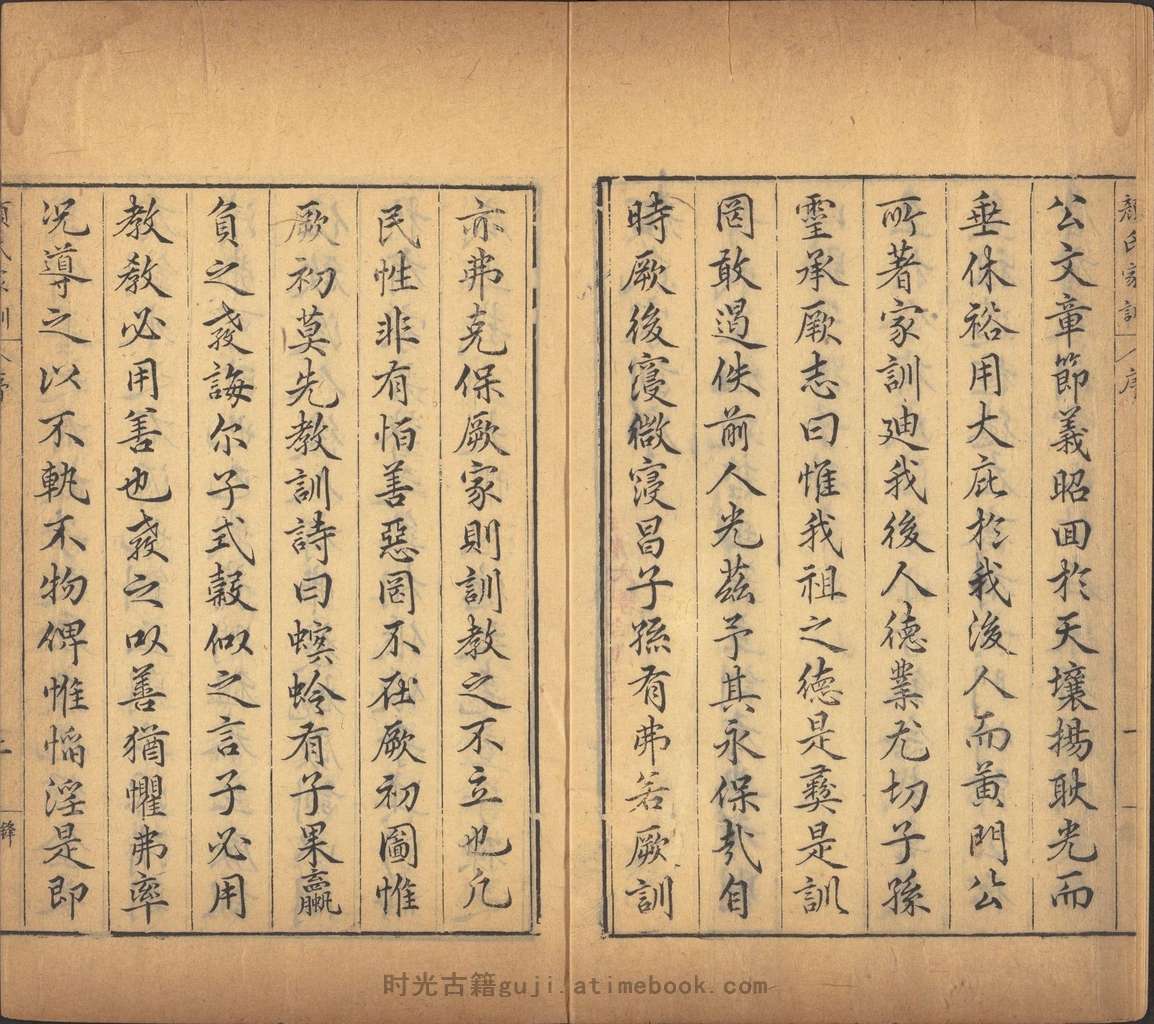 顏氏家訓 序 一
公文章節義昭回於天壤揚耿光而
垂休裕用大庇於我後人而黄門公
所著家訓廸我後人德業尤切子孫
靈承厥志曰惟我祖之德是彝是訓
罔敢遏佚前人光兹予其永保哉自
時厥後寖微寖昌子孫有弗若厥訓
亦弗克保厥家則訓教之不立也凡
民性非有恒善惡罔不在厥初圖惟
厥初莫先教訓詩曰螟蛉有子果蠃
負之教誨尔子式穀似之言子必用
教教必用善也教之以善猶懼弗率
况導之以不軌不物俾惟慆淫是即
顏氏家訓 序 二 鋒
时光古籍guji.atimebook.com